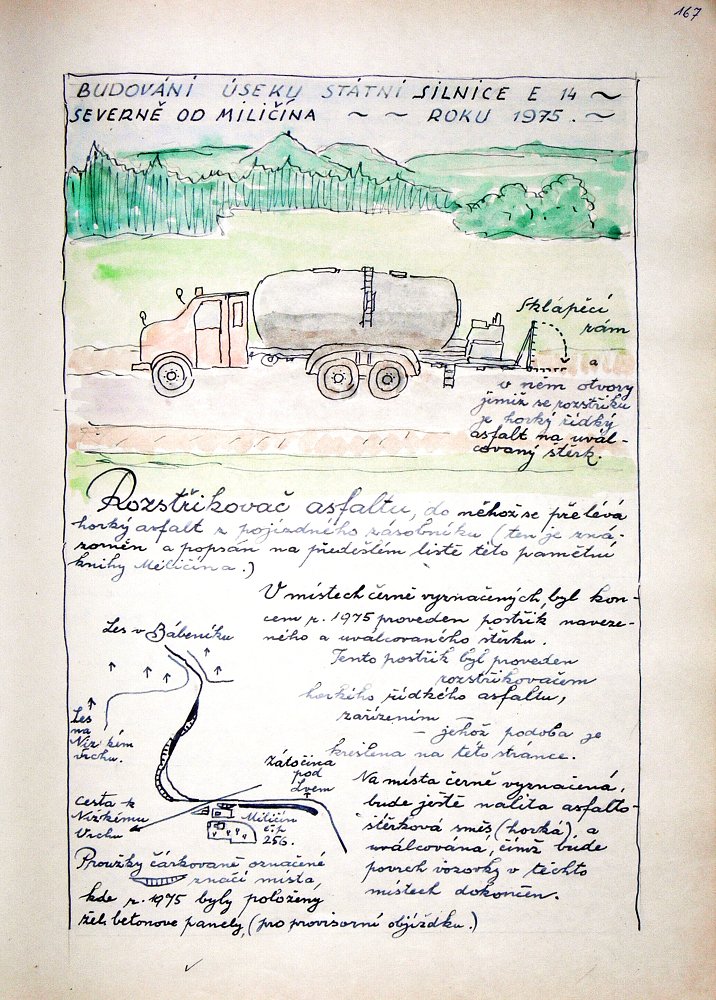 167
BUDOVÁNÍ ÚSEKU STÁTNÍ SILNICE E 14 ~
SEVERNĚ OD MILIČÍNA ~ ~ ROKU 1975. ~
Sklápěcí
rám
a
v něm otvory
jimiž se rozstřikuje
je horký řídký
asfalt na uvál-
covaný štěrk.
Rozstřikovač asfaltu, do něhož se přelévá
horký asfalt z pojízdného zásobníku, (ten je zná-
zorněn a popsán na předešlém listě této pamětní
knihy Miličína.)
V místech černě vyznačených, byl kon-
cem r. 1975 proveden postřik naveze-
ného a uválcovaného štěrku.
Tento postřik byl proveden
rozstřikovačem
horkého řídkého asfaltu,
zařízením —
— jehož podoba je
kreslena na této stránce.
Les v Bábeníku
Les
na
Nízkém
vrchu.
Zátočina
pod
Lvem
cesta k
Nízkému
Vrchu
Miličín
č.p.
256.
Na místa černě vyznačená,
bude ještě nalita asfalto-
štěrková směs (horká), a
uválcována, čímž bude
povrch vozovky v těchto
místech dokončen.
Proužky čárkovaně označené
značí místa,
kde r. 1975 byly položeny
žel. betonové panely, (pro provisorní objížďku.)